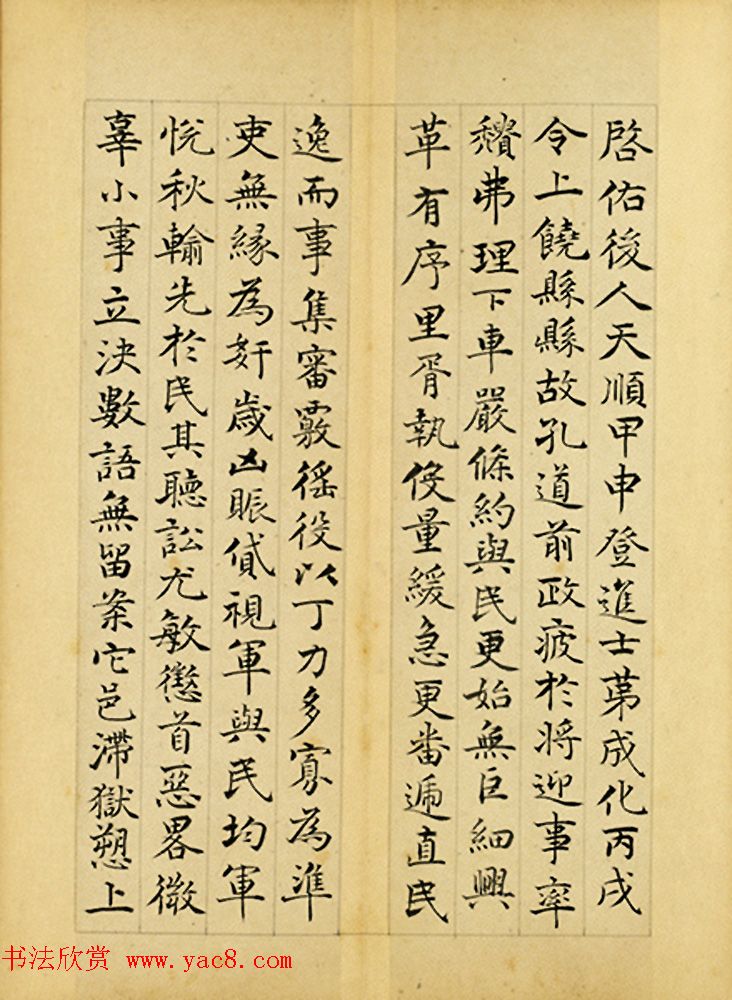 啓佑後人天順甲申登進士苐成化丙戌
令上饒縣縣故孔道前政疲於将迎事率
穳弗理下車嚴條約與民更始無巨細興
革有序里胥執伇量緩急更番遞直民
逸而事集審覈徭役以丁力多寡為準
吏無緣為奸歳凶賑貸視軍與民均軍
悦秋輸先於民其聽訟尤敏懲首惡畧微
辜小事立決數語無留案它邑滯獄愬上
书法欣赏 www.yac8.com